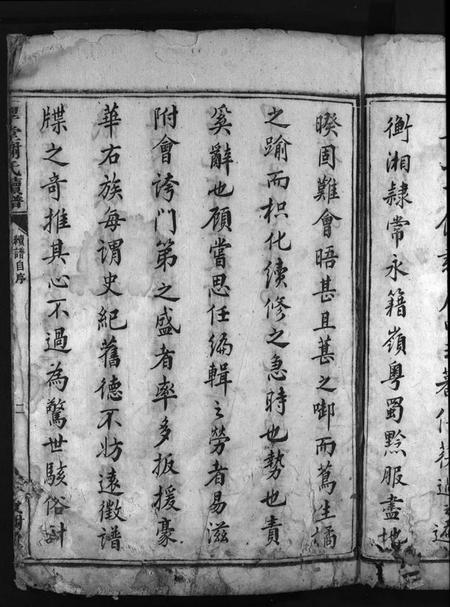 衡湘隸常永籍嶺粵蜀黔服盡地
暌固難會晤甚且葚之啣而蔦生橘
之踰而枳化續修之急時也勢也責
奚辭也顧嘗思任編輯之勞者易滋
附會誇門第之盛者率多扳援豪
華右族每謂史紀舊德不妨遠徵譜
牒之奇推其心不過為驚世駭俗計
堂謝氏續譜
續譜自序
二